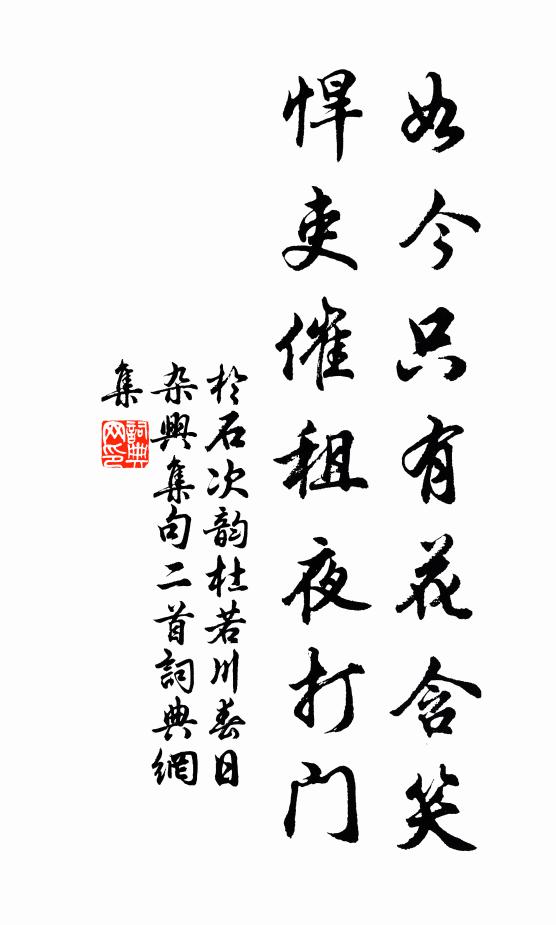 如今只有花含笑
悍吏催租夜打门
於石次韵杜若川春日
杂興集句二首詞典網
集
詞典网印